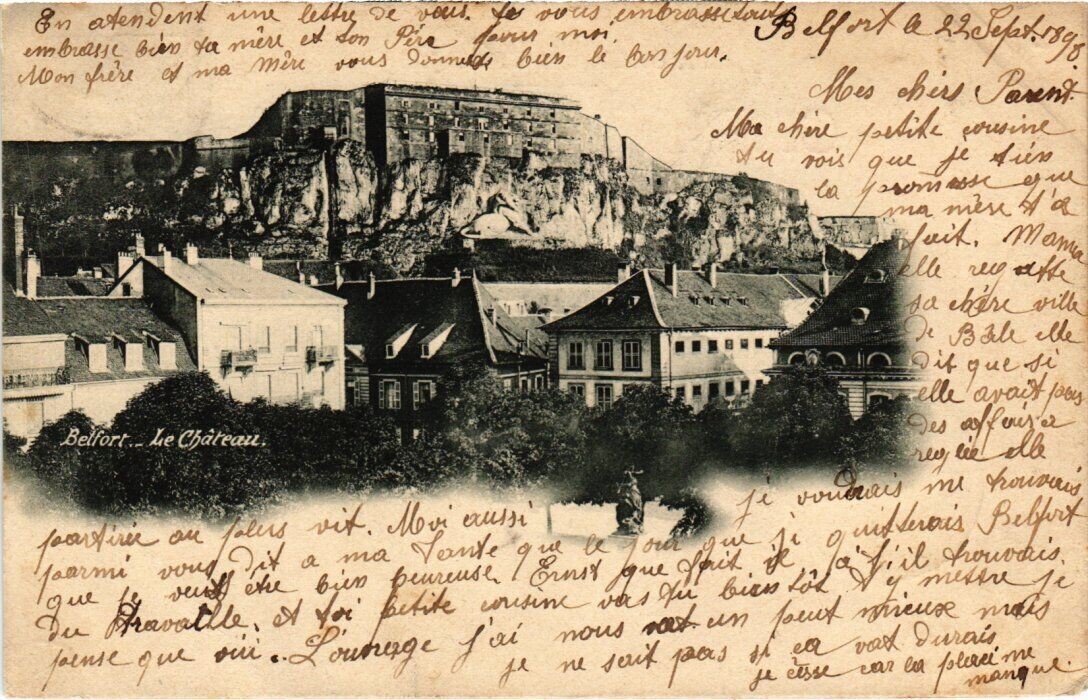 Belfort le 22 Sept. 1898.
Mes chérs Parent
Ma chère petite cousine
tu vois que je tien
la promesse que
ma mère t'a
fait. Maman
elle regrette
sa chére ville
de Bâle elle
dit que si
elle avait pas
des affaire
reglée elle
partirée au plus vit. Moi aussi je voudrais me trouvais
parmi vous dit a ma Tante que le jour que je quitterais Belfort
que je veut être bien heureuse. Ernst que fait il, a s'il trouvais
du travaille. et toi petite cousine vas tu bientôt t'y mettre je
pense que oui. L'ouvrage j'ai nous vat un peut mieux mais
je ne sait pas si ca vat durais
je cesse car la place me
manque.
En atendent une lettre de vous. Je vous embrasse tout
embrasse bien ta mère et ton Pére pour moi.
Mon frère et ma Mère vous donnent bien le bonjour.
Belfort._ Le Château.